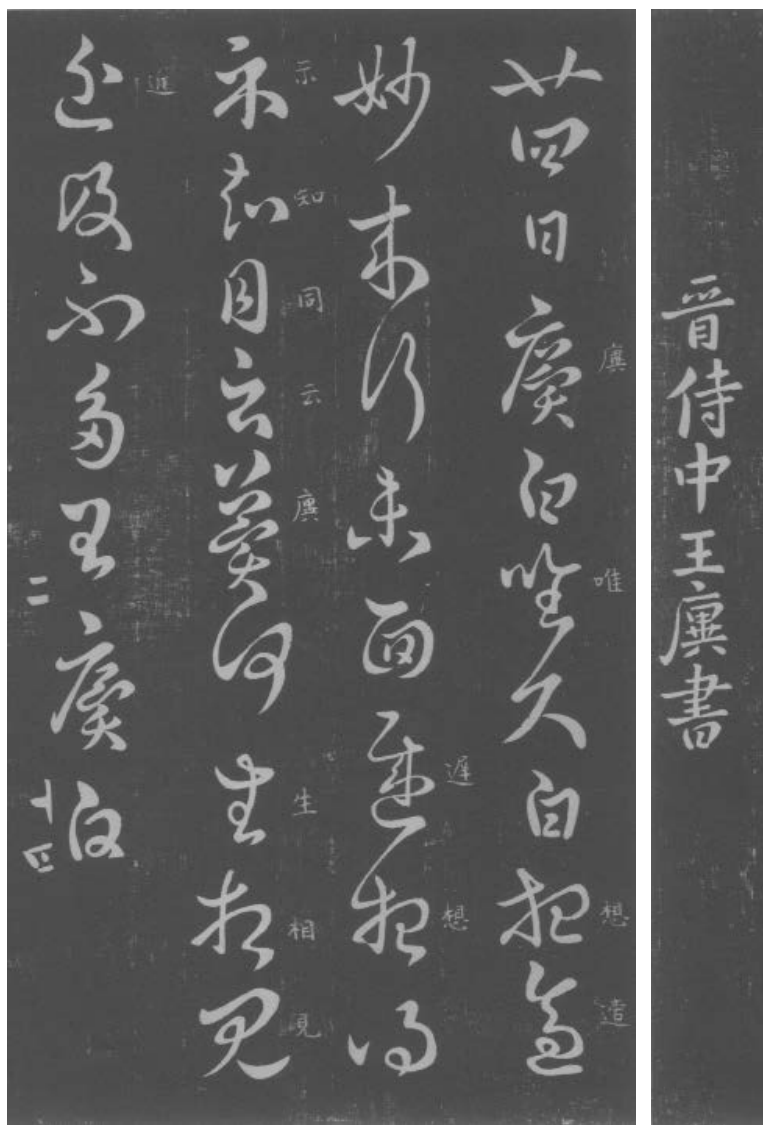 晉侍中王廙書
廿四日廙白唯久白想造
廙唯想造
妙来行未面遲想得
遲想
示知目云廙何生相見
示知同云廙生相見
進及不多王廙白
進
二
十四